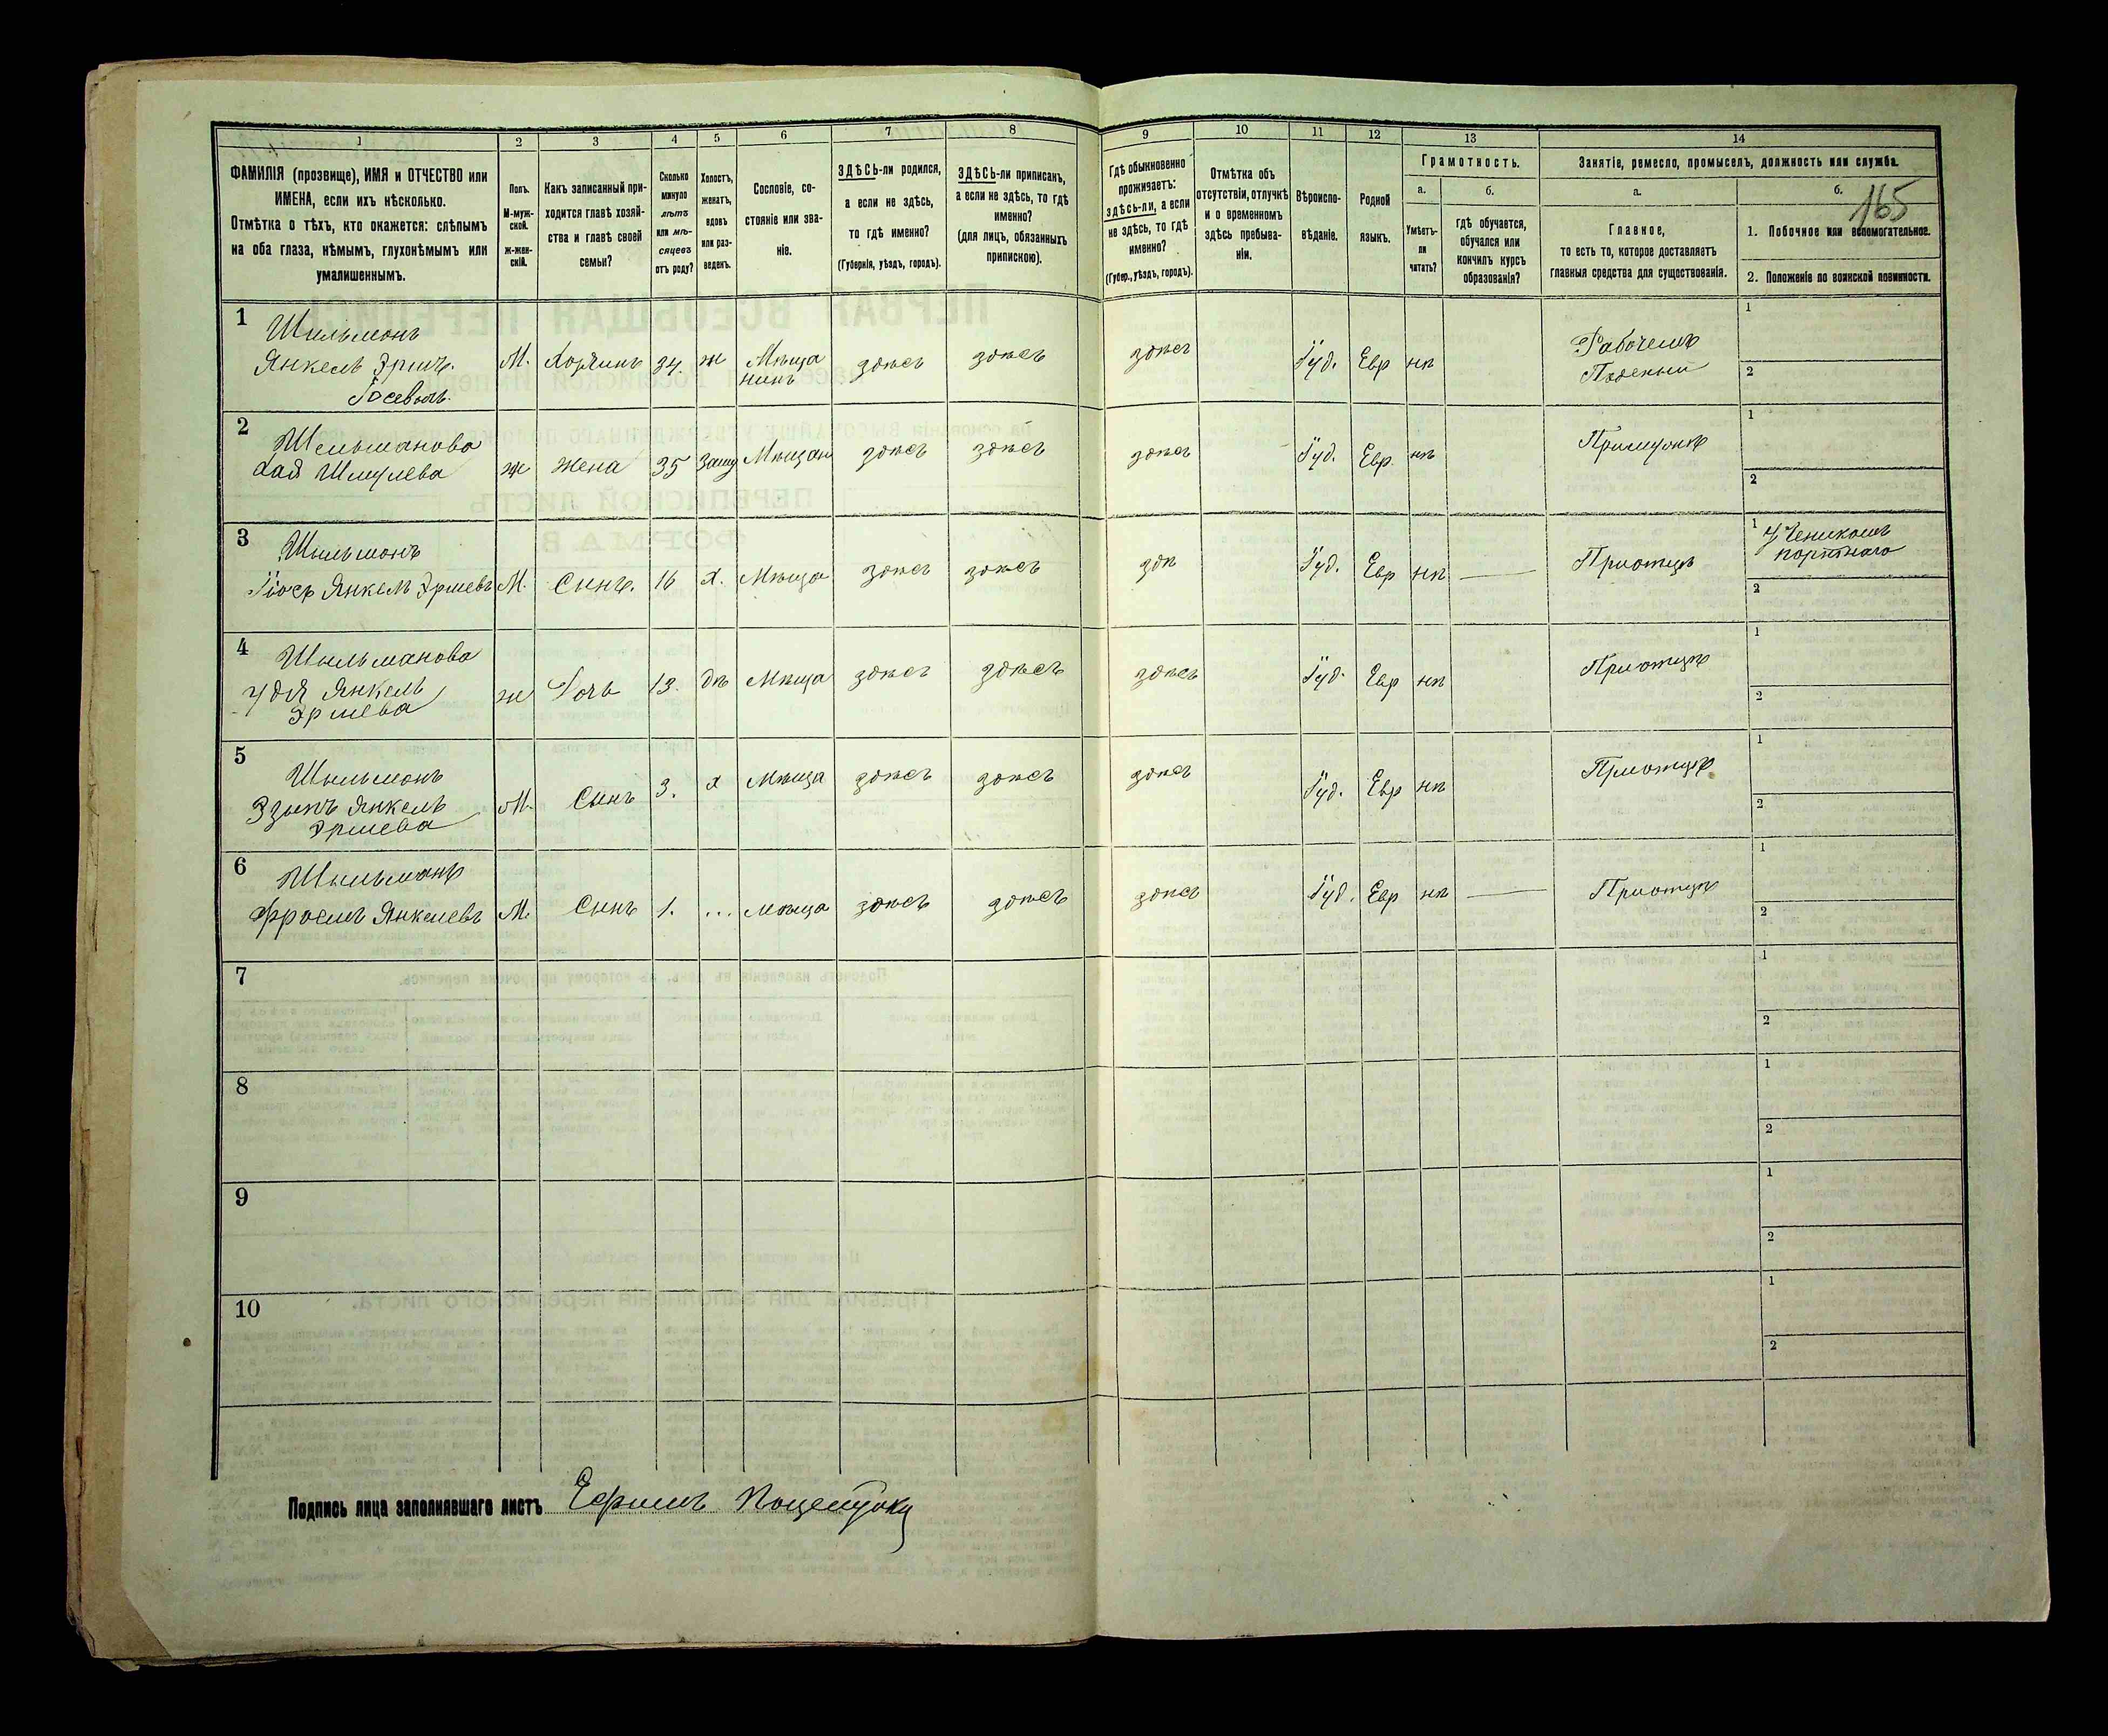 165
1 2 3 4 5 6 7 8 9 10 11 12 13 14
ФАМИЛІЯ (прозвище), ИМЯ и ОТЧЕСТВО или
ИМЕНА, если ихъ нѣсколько.
Отмѣтка о тѣхъ, кто окажется: слѣпымъ
на оба глаза, нѣмымъ, глухонѣмымъ или
умалишеннымъ.
Полъ.
М-муж-
ской.
Ж-жен-
скій.
Какъ записанный при-
ходится главѣ хозяй-
ства и главѣ своей
семьи?
Сколько
минуло
лѣтъ
или мѣ-
сяцевъ
отъ роду?
Холостъ,
женатъ,
вдовъ
или раз-
веденъ.
Сословіе, со-
стояніе или зва-
ніе.
ЗДѢСЬ-ли родился,
а если не здѣсь,
то гдѣ именно?
(Губернія, уѣздъ, городъ).
ЗДѢСЬ-ли приписанъ,
а если не здѣсь, то гдѣ
именно?
(для лицъ, обязанныхъ
припискою).
Гдѣ обыкновенно
проживаетъ:
здѣсь-ли, а если
не здѣсь, то гдѣ
именно?
(Губер., уѣздъ, городъ).
Отмѣтка объ
отсутствіи, отлучкѣ
и о временномъ
здѣсь пребыва-
ніи.
Вѣроиспо-
вѣданіе.
Родной
языкъ.
Грамотность.
а. б.
Умѣетъ-
ли
читать?
гдѣ обучается,
обучался или
кончилъ курсъ
образованія?
Занятіе, ремесло, промыселъ, должность или служба.
а. б.
Главное,
то есть то, которое доставляетъ
главныя средства для существованія.
1. Побочное или вспомогательное.
2. Положеніе по воинской повинности.
1 Шильмонъ
Янкель Эршъ. М. Хозяинъ 34 ж Мѣща здѣсь здѣсь здѣсь Іуд. Евр нѣ Рабочемъ 1
нинъ Поденый 2
Іосевъ.
2 Шельманова
Хая Шмулева ж жена 35 Заму Мѣщан здѣсь здѣсь здѣсь Іуд. Евр. нѣ 1
2
3 Шильмонъ
Іось Янкель Эршевъ М. Сынъ. 16 х. Мѣща здѣсь здѣсь здѣ Іуд. Евр нѣ — Приотцѣ 1 Ученикомъ
портнаго
2
4 Шильманова
Удя Янкель ж Дочь 13. дѣ Мѣща здѣсь здѣсь здѣсь Іуд. Евр нѣ Приотцѣ 1
Эршева 2
5 Шильмонъ
Янкель М. Сынъ 3. х Мѣща здѣсь здѣсь здѣсь Іуд. Евр нѣ Приотцѣ 1
Эршева 2
6 Шильманъ
Фроемъ Янкелевъ М. Сынъ 1. ... мѣща здѣсь здѣсь здѣсь Іуд. Евр нѣ — Приотцѣ 1
2
7 1
2
8 1
2
9 1
2
10 1
2
Подпись лица заполнявшаго листъ Ефимъ